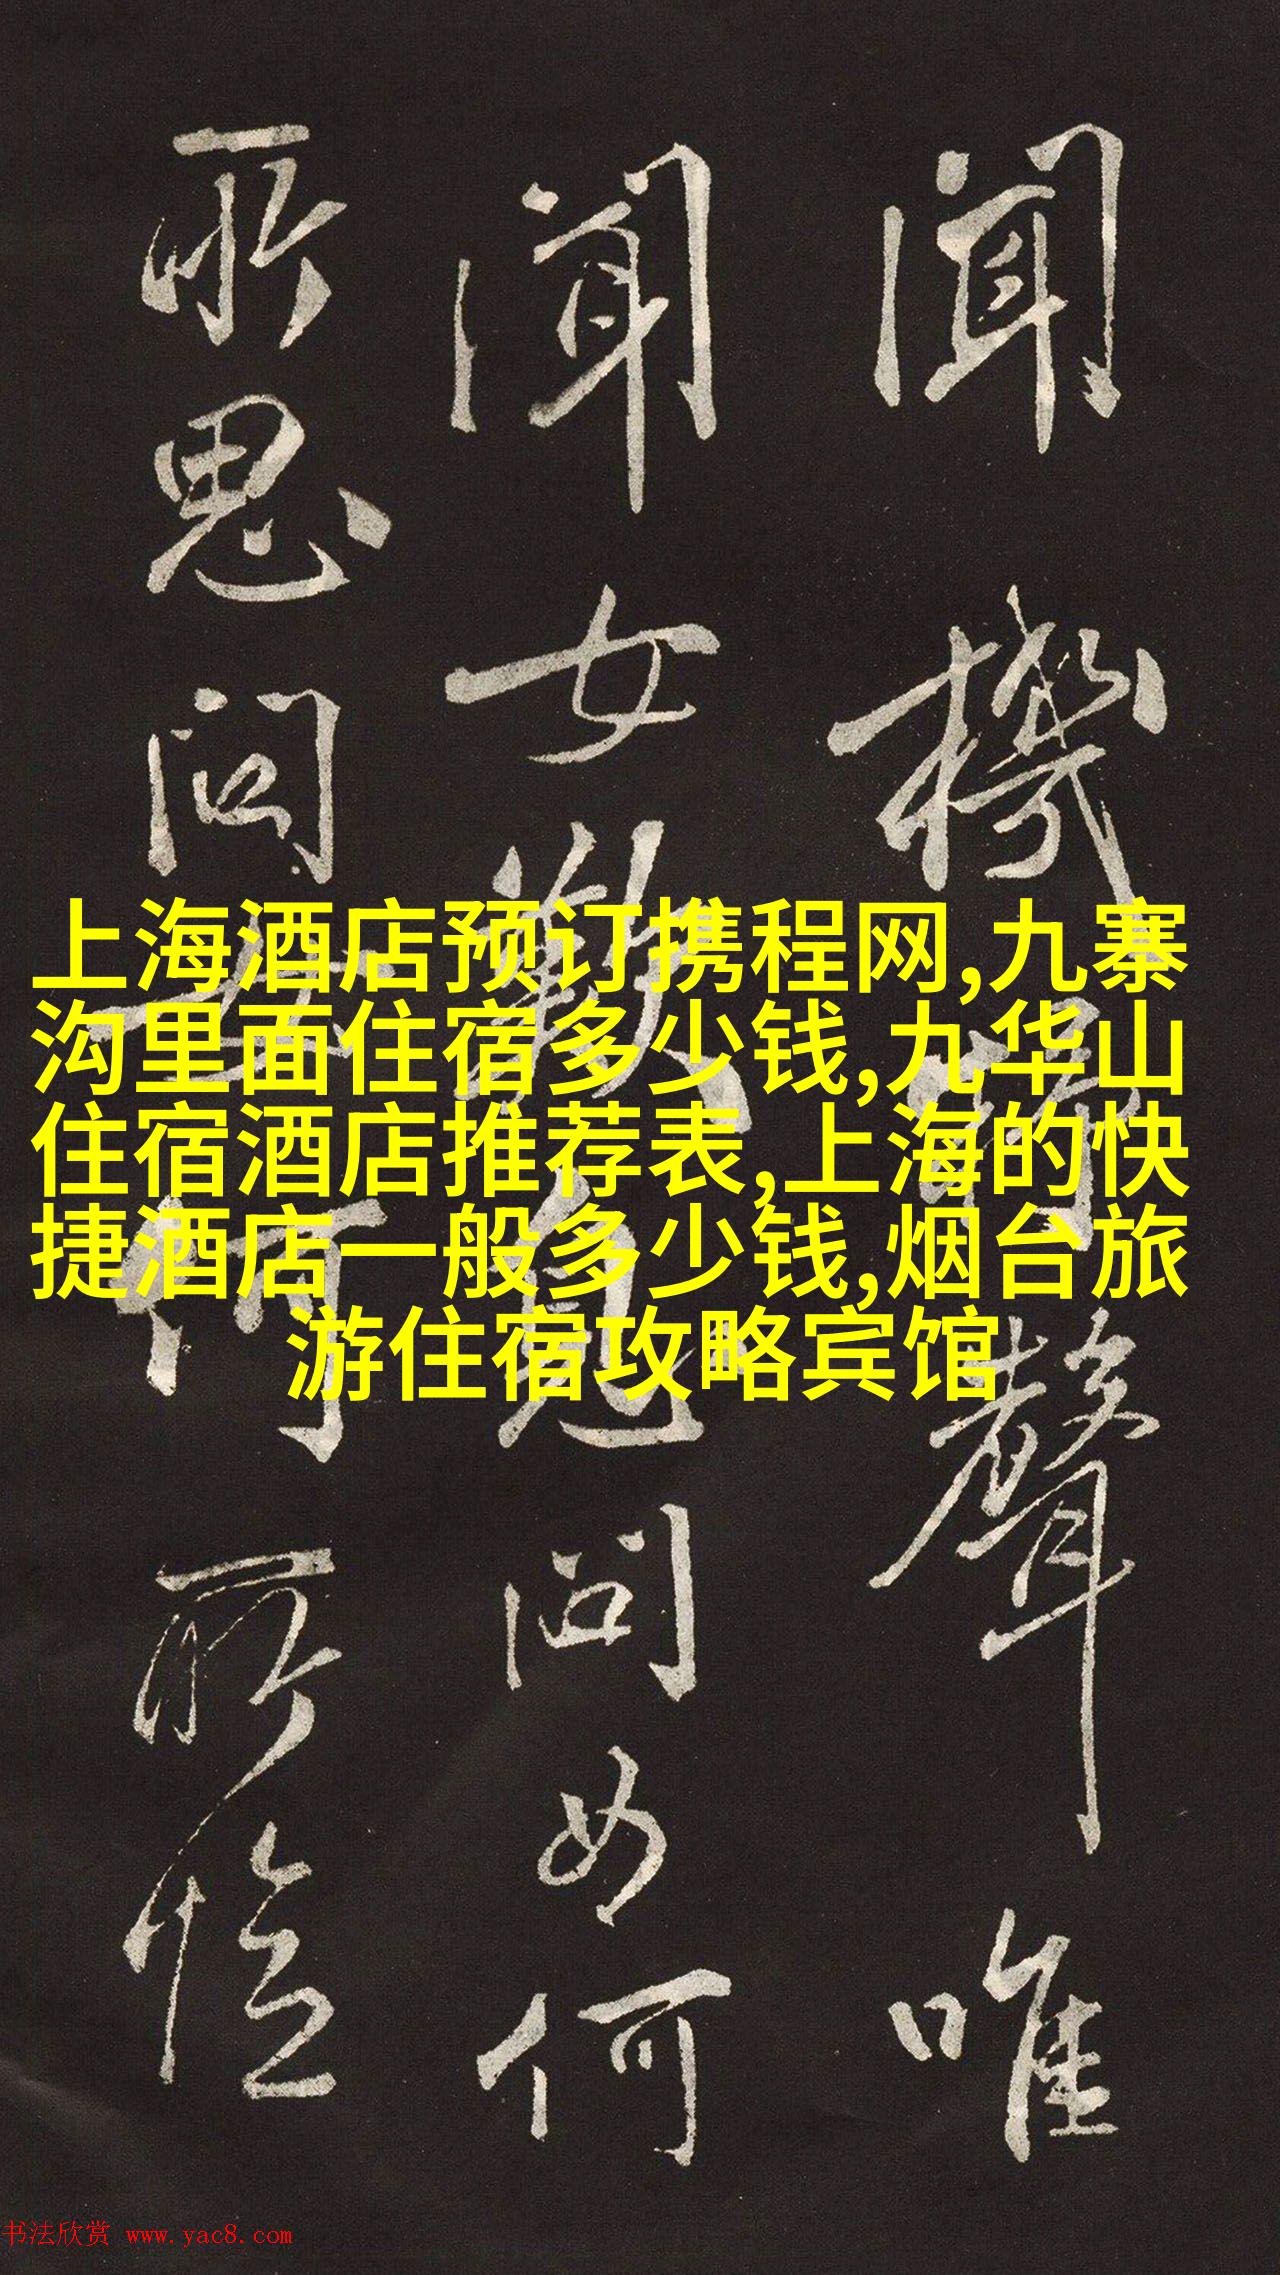 聞機杼聲唯
聞女歎息問女何
所思問女何所憶
上海酒店预订携程网,九寨
沟里面住宿多少钱,九华山
住宿酒店推荐表,上海的快
捷酒店一般多少钱,烟台旅
游住宿攻略宾馆
书法欣赏 www.yac8.com